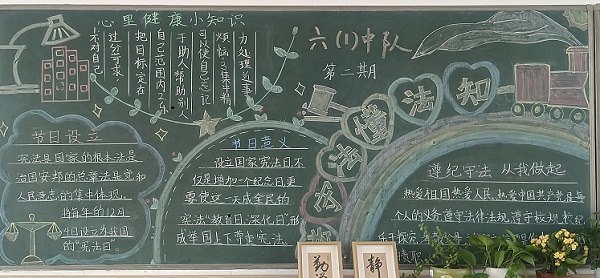 心里健康小知识
不对自己
过分苛求
把目标定在
自己范围内
于助人帮助别人
可以使自己忘记
烦恼
力处理
六(1)中队
第二期
知法懂法
节日设立
宪法是国家的根本法是
治国安邦的总章法是党和
人民意志的集中体现。
将每年的12月
4日设立为我国
的“宪法日”。
节日意义
设立国家宪法日不
仅是增加一个纪念日更
要使这一天成全民的
宪法“教育日,深化日”形
成举国上下尊重宪法.
遵纪守法 从我做起
热爱祖国热爱人民,热爱中国共产党是每
个人的义务遵守法律法规,遵守校规校纪
乐于探究
勤
静